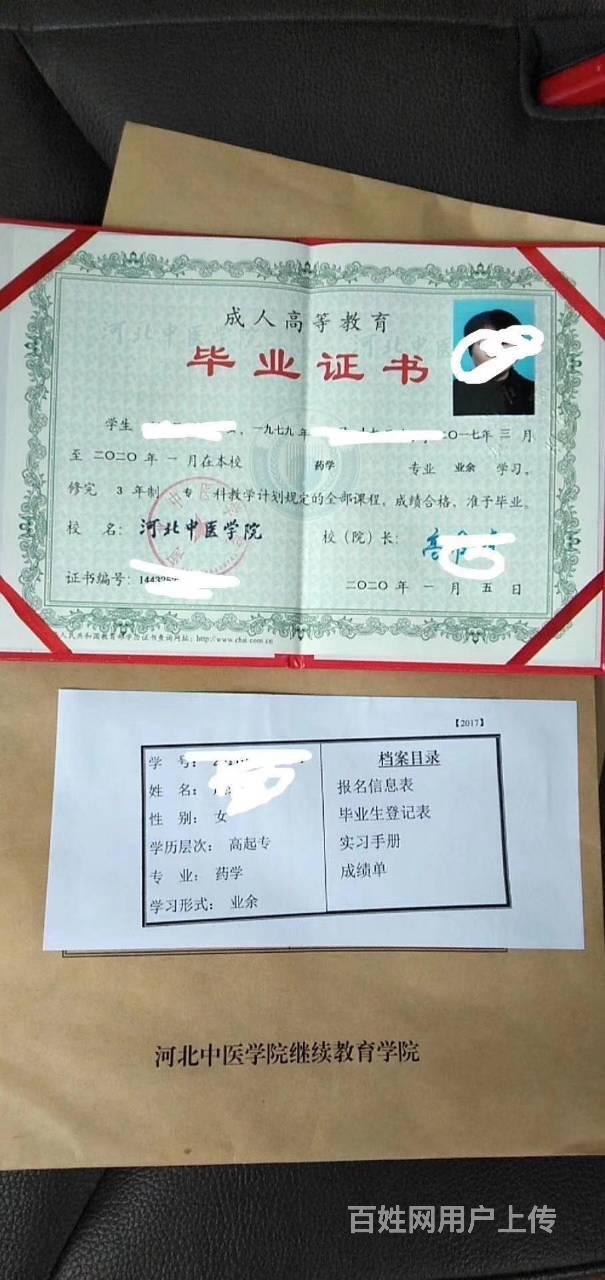 成人高等教育
毕业证书
学生 一九七九年 二〇一七年 三 月
至 二〇二〇 年 一 月在本校 药学 专业 业余 学习,
修完 3 年制 专 科教学计划规定的全部课程,成绩合格,准予毕业。
校 名: 河北中医学院 校(院)长:
证书编号:
二〇二〇 年 一 月 五 日
人民共和国教育部学历证书查询网址: http://www.chsi.com.cn
【2017】
学 号: 档案目录
姓 名: 报名信息表
性 别: 女 毕业生登记表
学历层次: 高起专 实习手册
专 业: 药学 成绩单
学习形式: 业余
河北中医学院继续教育学院
百姓网用户上传